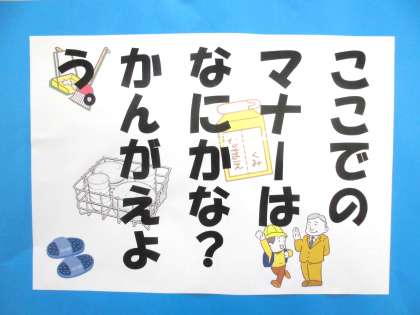 ここでの
マナーは
なにかな?
かんがえよ
う。